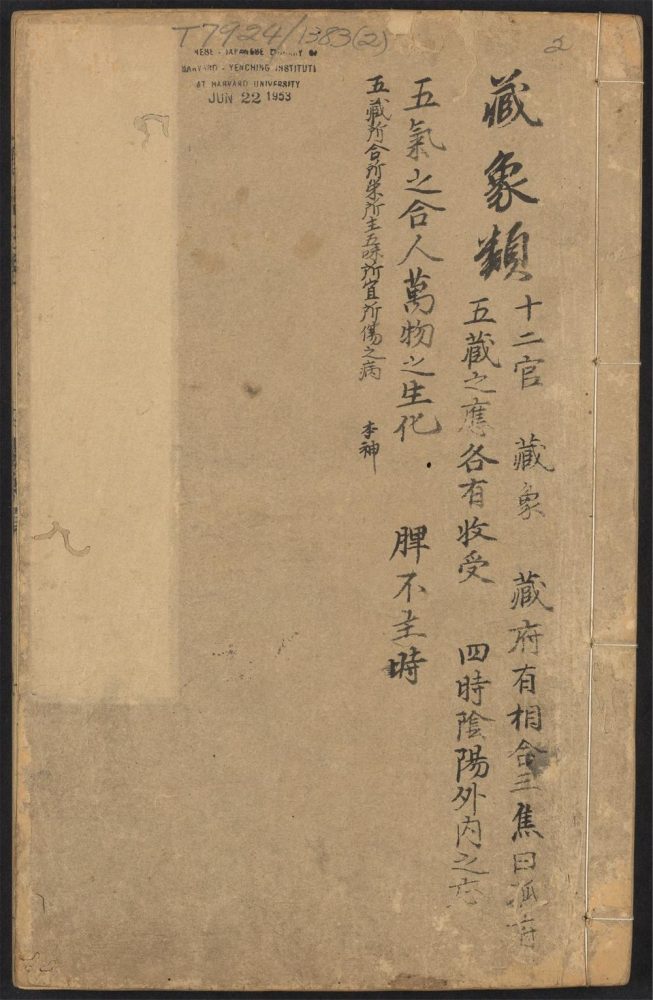 T7924/1383(2)
2
CHINESE - JAPANESE LIBRARY OF
HARVARD - YENCHING INSTITUTE
AT HARVARD UNIVERSITY
JUN 22 1953
藏象類
十二官 藏象 藏府有相合三焦曰孤府
五藏之應各有收受 四時陰陽外内之應
五氣之合人萬物之生化 脾不主時
五藏所合所榮所主五味所宜所傷之病 本神